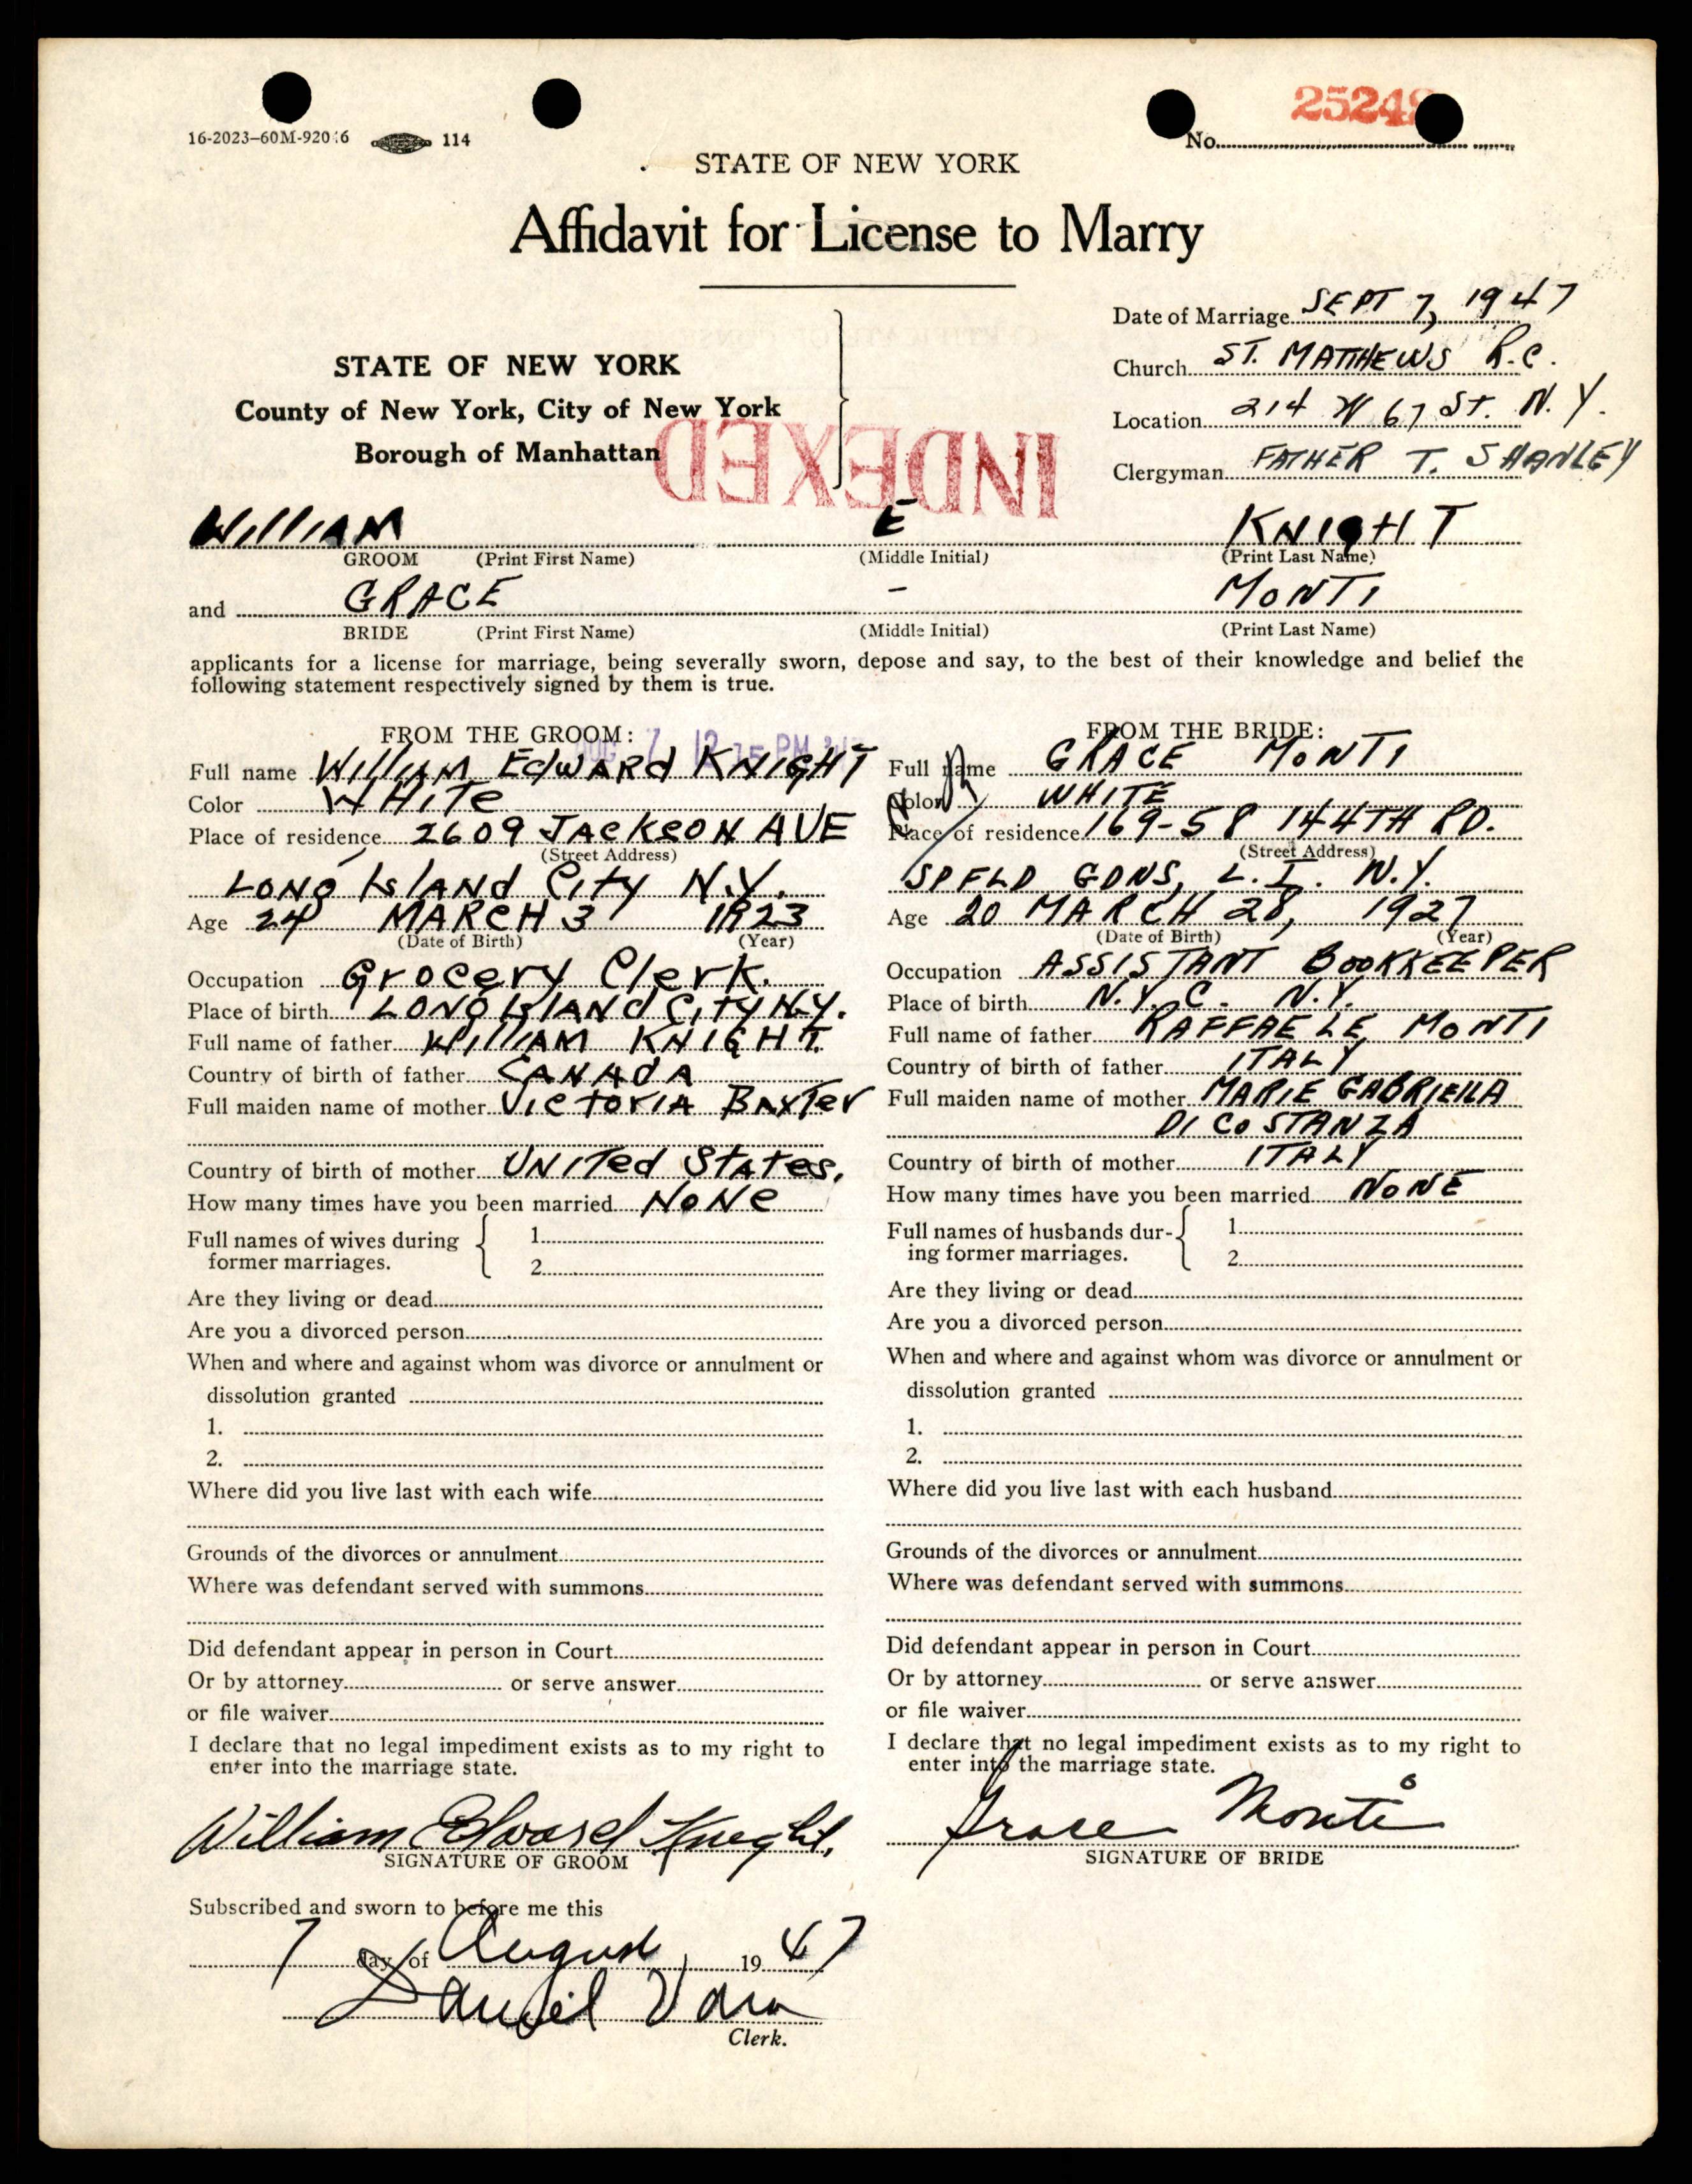 16-2023–60M-92046 114
No. 2524
STATE OF NEW YORK
Affidavit for License to Marry
Date of Marriage SEPT 7, 1947
Church ST. MATTHEWS R.C.
Location 214 W 67 St. N.Y.
Clergyman FATHER T. SHANLEY
STATE OF NEW YORK
County of New York, City of New York
Borough of Manhattan
INDEXED
WILLIAM E KNIGHT
GROOM (Print First Name) (Middle Initial) (Print Last Name)
and GRACE – MONTI
BRIDE (Print First Name) (Middle Initial) (Print Last Name)
applicants for a license for marriage, being severally sworn, depose and say, to the best of their knowledge and belief the
following statement respectively signed by them is true.
FROM THE GROOM:
7 12 15 PM
Full name WILLIAM EdWARd KNIGHT
Color WHITe
Place of residence 2609 JAckson AVE
(Street Address)
LONG IslANd CITY N.Y.
Age 24 MARCH 3 1923
(Date of Birth) (Year)
Occupation Grocery Clerk.
Place of birth LONG IslANd CITY N.Y.
Full name of father WIllIAM KNIGHT.
Country of birth of father CANAdA
Full maiden name of mother VIcTORIA BAxTer
Country of birth of mother UNITed STATes.
How many times have you been married NoNe
Full names of wives during
former marriages.
1
2
Are they living or dead
Are you a divorced person
When and where and against whom was divorce or annulment or
dissolution granted
1.
2.
Where did you live last with each wife
Grounds of the divorces or annulment
Where was defendant served with summons
Did defendant appear in person in Court
Or by attorney or serve answer
or file waiver
I declare that no legal impediment exists as to my right to
enter into the marriage state.
William Edward Knight.
SIGNATURE OF GROOM
Subscribed and sworn to before me this
7 day of August, 1947
Clerk.
FROM THE BRIDE:
Full name GRACE MONTI
Color WHITE
Place of residence 169-58 144TH RD.
(Street Address)
SPFLD GDNS, L.I. N.Y.
Age 20 MARCH 28, 1927
(Date of Birth) (Year)
Occupation ASSISTANT BOOKKEEPER
Place of birth N.Y.C. N.Y.
Full name of father RAFFAELE MONTI
Country of birth of father ITALY
Full maiden name of mother MARIE GABRIELLA
DI COSTANZA
Country of birth of mother ITALY
How many times have you been married NONE
Full names of husbands dur-
ing former marriages.
1
2
Are they living or dead
Are you a divorced person
When and where and against whom was divorce or annulment or
dissolution granted
1.
2.
Where did you live last with each husband
Grounds of the divorces or annulment
Where was defendant served with summons
Did defendant appear in person in Court
Or by attorney or serve answer
or file waiver
I declare that no legal impediment exists as to my right to
enter into the marriage state.
Grace Monti
SIGNATURE OF BRIDE